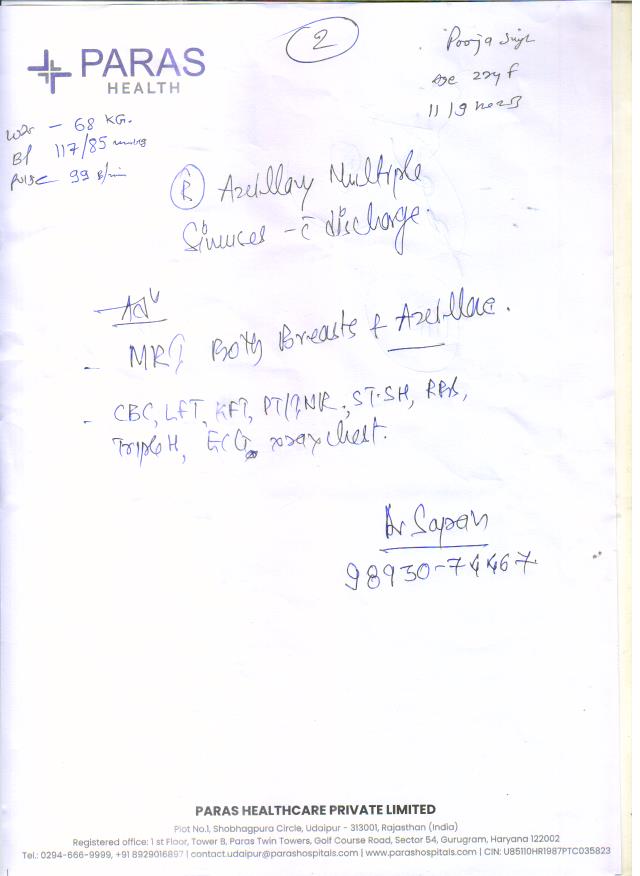 2
Pooja Singh
Age 22y F
PARAS
HEALTH
68 KG.
BP 117/85 mmHg
Pulse 99 B/min
(R) Axillary Multiple
Sinuses - c̄ discharge.
Adv
- MRI Both Breasts & Axillae.
- CBC, LFT, KFT, PT/INR, S.TSH, RBS,
Triple H, ECG, xray chest.
Dr Sapan
98930-74467
PARAS HEALTHCARE PRIVATE LIMITED
Plot No.1, Shobhagpura Circle, Udaipur - 313001, Rajasthan (India)
Registered office: 1 st Floor, Tower B, Paras Twin Towers, Golf Course Road, Sector 54, Gurugram, Haryana 122002
Tel.: 0294-666-9999, +91 8929016897 | contact.udaipur@parashospitals.com | www.parashospitals.com | CIN: U85110HR1987PTC035823